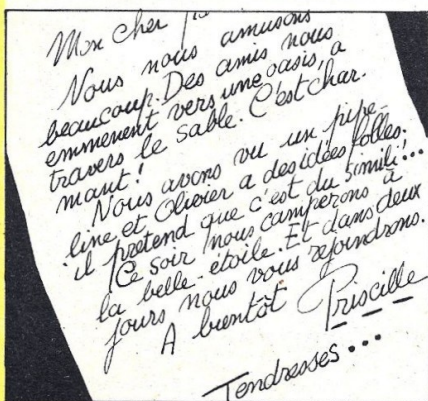 Mon cher
Nous nous amusons
beaucoup. Des amis nous
emmènent vers une oasis, à
travers le sable. C'est char-
mant!
Nous avons vu un pipe-
line et Olivier a des idées folles.
il prétend que c'est du simili!...
Ce soir nous camperons à
la belle-étoile. Et dans deux
jours nous vous rejoindrons.
A bientôt Priscille
Tendresses...